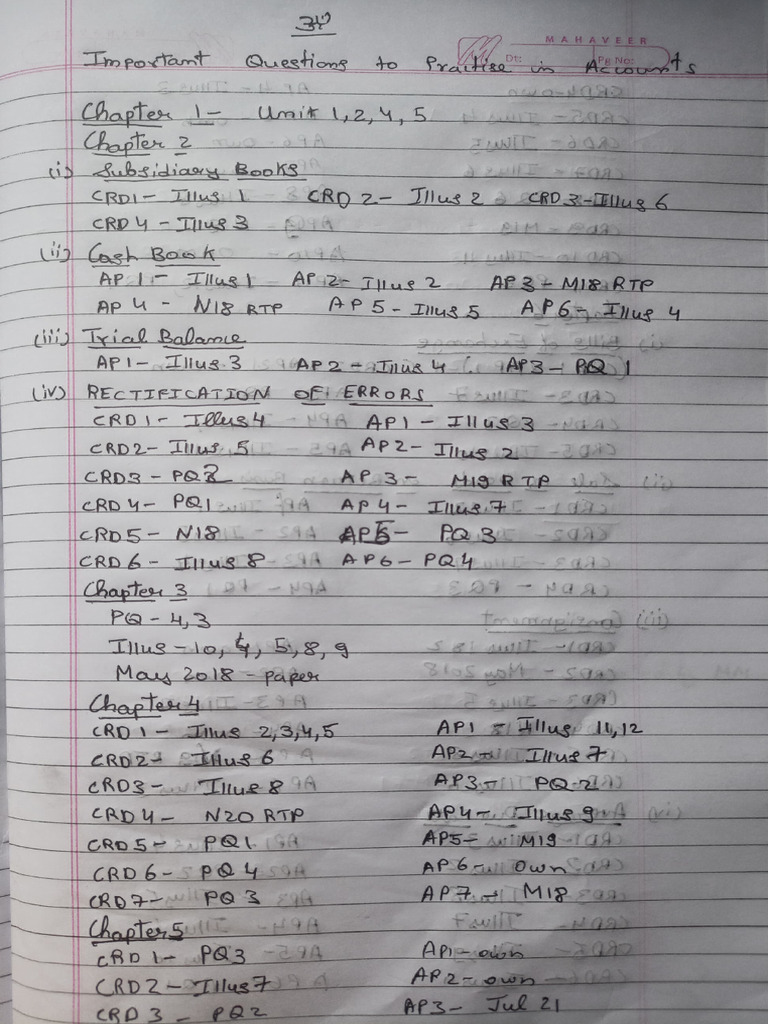 ॐ
MAHAVEER
Important Questions to Practise in Accounts
Dt: Pg No:
Chapter 1 - Unit 1, 2, 4, 5
Chapter 2
(i) Subsidiary Books
CRD1 - Illus 1 CRD 2 - Illus 2 CRD 3 - Illus 6
CRD 4 - Illus 3
(ii) Cash Book
AP 1 - Illus 1 AP 2 - Illus 2 AP 3 - M18 RTP
AP 4 - N18 RTP AP 5 - Illus 5 AP 6 - Illus 4
(iii) Trial Balance
AP1 - Illus 3 AP2 - Illus 4 AP3 - PQ 1
(iv) RECTIFICATION OF ERRORS
CRD 1 - Illus 4 AP1 - Illus 3
CRD2 - Illus 5 AP2 - Illus 2
CRD3 - PQ2 AP 3 - M19 RTP
CRD 4 - PQ1 AP 4 - Illus 7
CRD 5 - N18 AP5 - PQ 3
CRD 6 - Illus 8 AP6 - PQ4
Chapter 3
PQ - 4, 3
Illus - 10, 4, 5, 8, 9
May 2018 - paper
Chapter 4
CRD 1 - Illus 2,3,4,5 AP1 - Illus 11,12
CRD2 - Illus 6 AP2 - Illus 7
CRD3 - Illus 8 AP3 - PQ-2
CRD 4 - N20 RTP AP4 - Illus 9
CRD 5 - PQ1 AP5 - M19
CRD 6 - PQ 4 AP6 - Own
CRD7 - PQ 3 AP7 - M18
Chapter 5
CRD 1 - PQ3 AP1 - own
CRD 2 - Illus 7 AP2 - own
CRD 3 - PQ2 AP3 - Jul 21